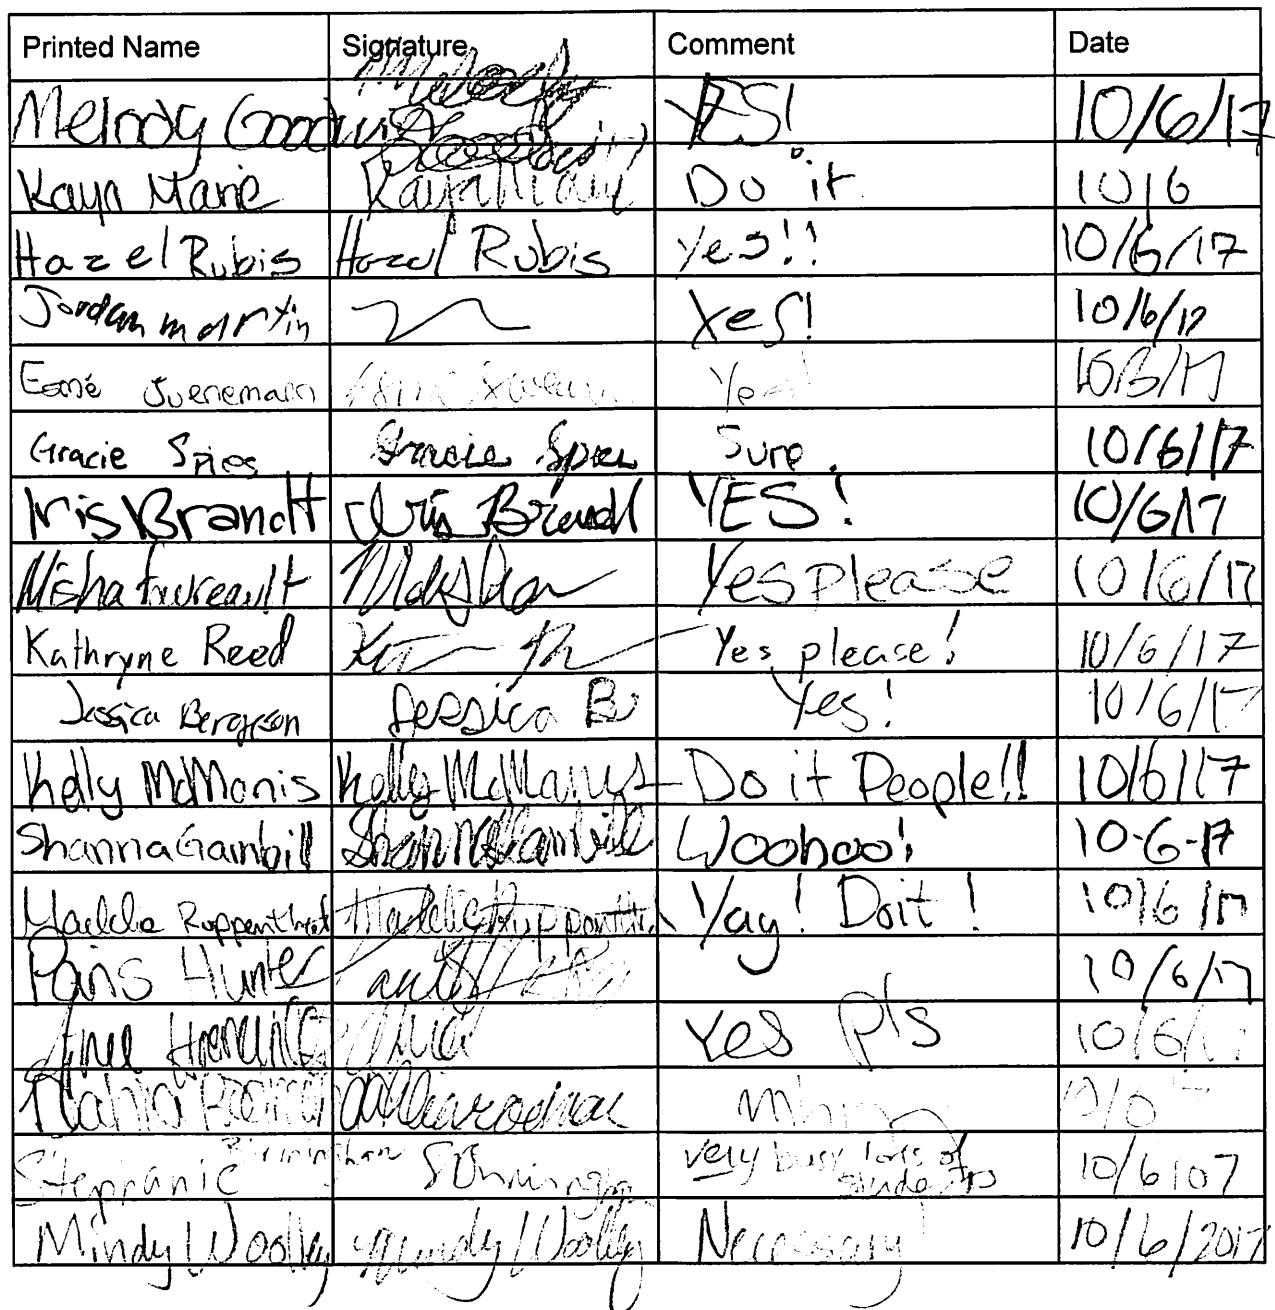 Printed Name Signature Comment Date
Melody Goodwin Melody Goodwin YES! 10/6/17
Kaya Marie Kaya Marie Do it. 10/6
Hazel Rubis Hazel Rubis Yes!! 10/6/17
Jordan martin Yes! 10/6/17
Esmé Juenemann Yes! 10/6/17
Gracie Spies Gracie Spies Sure. 10/6/17
Iris Brandt Iris Brandt YES! 10/6/17
Misha Yes please 10/6/17
Kathryne Reed Yes please! 10/6/17
Jessica Bergeson Jessica B Yes! 10/6/17
Kelly McManis Kelly McManis Do it People!! 10/6/17
Shanna Gambill Shanna Gambill Woohoo! 10-6-17
Maddie Ruppenthal Maddie Ruppenthal Yay! Do it! 10/6/17
Paris Hunter 10/6/17
Yes pls 10/6/17
Stephanie Birmingham S Birmingham very busy lots of
students 10/6/07
Mindy Woolley Mindy Woolley Necessary 10/6/2017